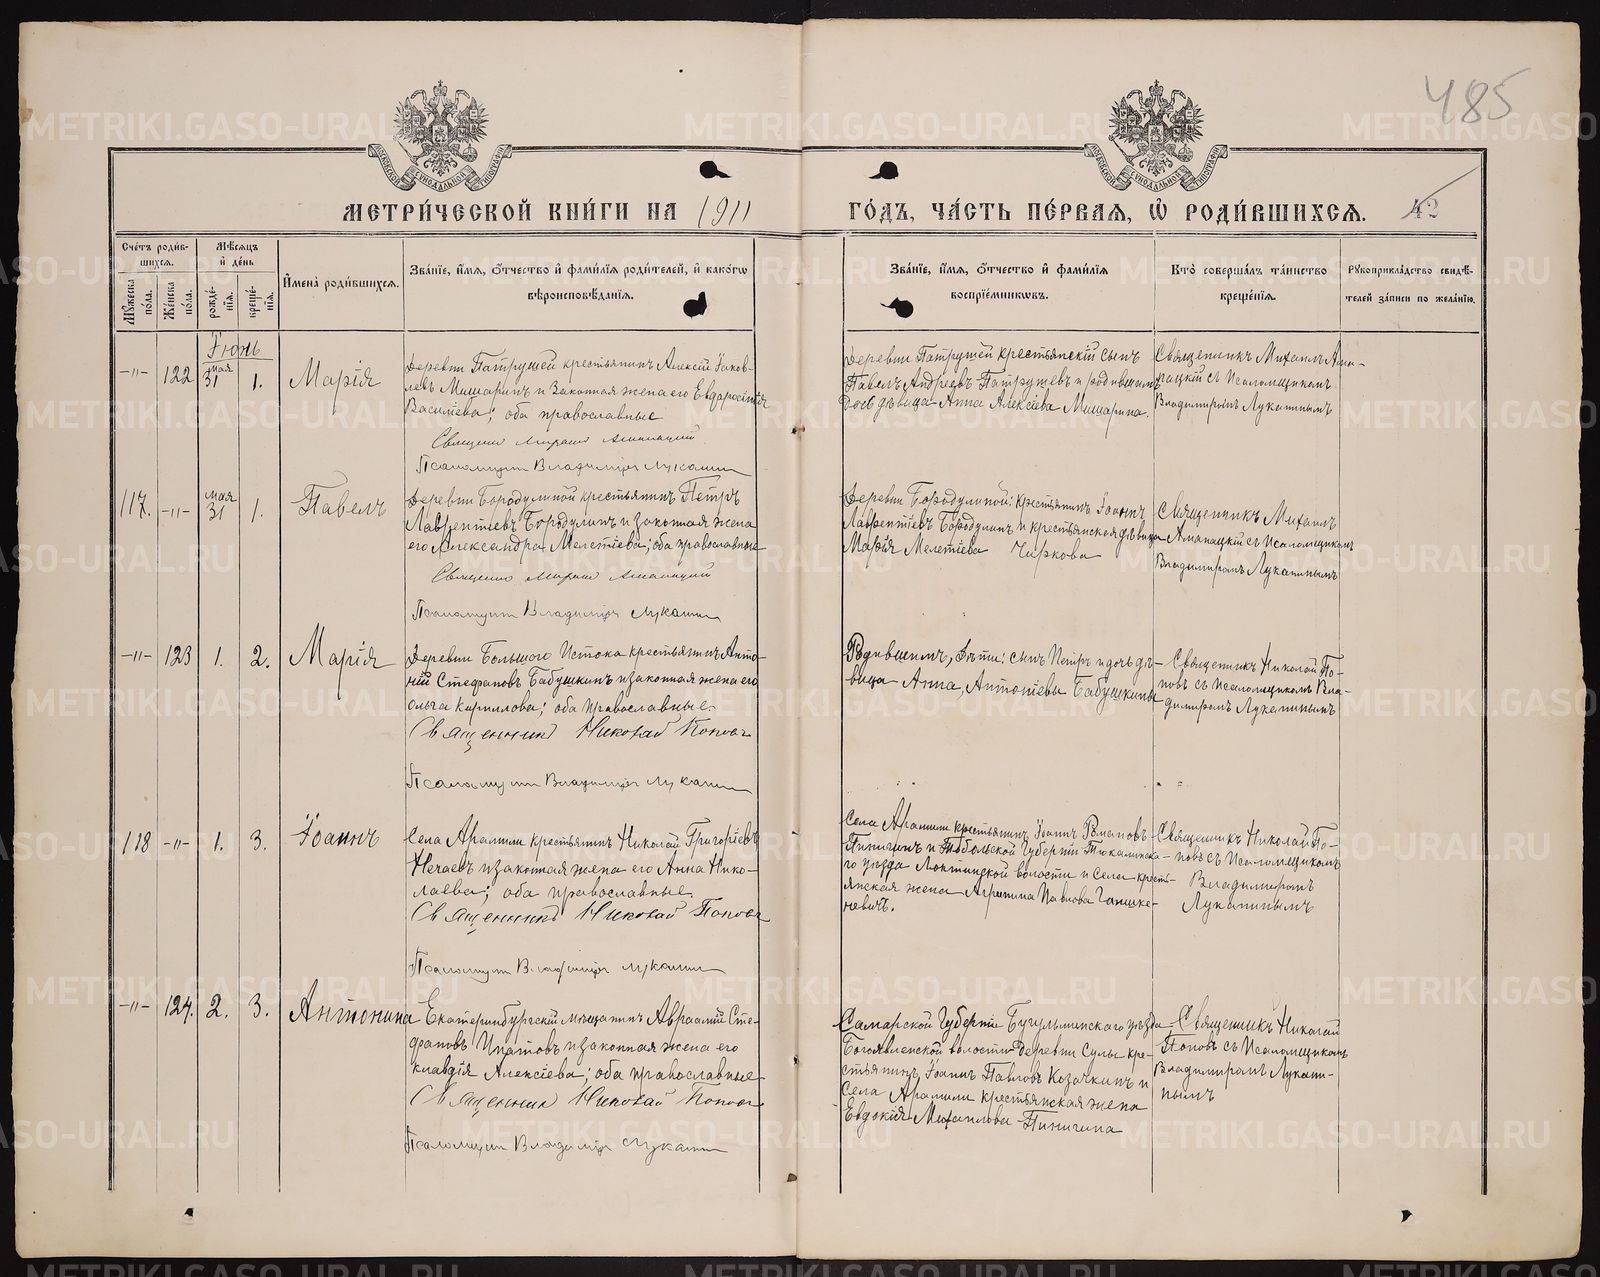 485
МОСКОВСКОЙ СѴНОДАЛЬНОЙ ТИПОГРАФІИ
МОСКОВСКОЙ СѴНОДАЛЬНОЙ ТИПОГРАФІИ
МЕТРИ́ЧЕСКОЙ КНИ́ГИ НА 1911 ГО́ДЪ, ЧА́СТЬ ПЕ́РВАЯ, Ѡ҆ РОДИ́ВШИХСЯ. 42
Сче́тъ роди́вшихся.
Мꙋ́жеска по́ла.
Же́нска по́ла.
Мѣ́сяцъ и҆ де́нь
рожде́нія.
креще́нія.
И҆мена̀ роди́вшихся.
Зва́ніе, и҆́мя, ѻ҆́тчество и҆ фами́лія роди́телей, и҆ како́гѡ
вѣроисповѣ́данія.
Зва́ніе, и҆́мя, ѻ҆́тчество и҆ фами́лія
воспріе́мниковъ.
Кто̀ соверша́лъ та́инство
креще́нія.
Рꙋкоприкла́дство свидѣ́-
телей за́писи по жела́нію.
Іюнь
-"- 122 мая 31 1. Марія
Деревни Патрушей крестьянинъ Алексій Іаков-
левъ Мишаринъ и законная жена его Евдросинія
Васильева; оба православные
Священ Михаил
Псаломщик Владимір Лукашин
Деревни Патрушей крестьянскій сынъ
Павелъ Андреевъ Патрушевъ и родившимъ
дочь дѣвица Анна Алексіева Мишарина.
Священникъ Михаилъ
съ Псаломщикомъ
Владимиромъ Лукашинымъ
117. -"- мая 31 1. Павелъ
Деревни Бородулиной крестьянинъ Петръ
Лаврентіевъ Бородулинъ и законная жена
его Александра Мелетіева; оба православные
Священ Михаил
Псаломщик Владимір Лукашин
Деревни Бородулиной: крестьянинъ Іоаннъ
Лаврентіевъ Бородулинъ и крестьянская дѣвица
Марія Мелетіева Чиркова
Священникъ Михаилъ
съ Псаломщикомъ
Владимиромъ Лукашинымъ
-"- 123 1. 2. Марія
Деревни Большого Истока крестьянинъ Анто-
ній Стефановъ Бабушкинъ и законная жена его
Ольга Кириллова; оба православные.
Священникъ Николай Поповъ
Псаломщик Владимір Лукашин
Родившимъ, дѣти: сынъ Петръ и дочь дѣ-
вица Анна, Антоніевы Бабушкины
Священникъ Николай По-
повъ съ Псаломщикомъ Вла-
димиромъ Лукашинымъ
118 -"- 1. 3. Іоаннъ
Села Арамили крестьянинъ Николай Григоріевъ
Нечаевъ и законная жена его Анна Нико-
лаева; оба православные.
Священникъ Николай Поповъ
Псаломщик Владимір Лукашин
Села Арамили крестьянинъ Іоаннъ Романовъ
Пинигинъ и Тобольской губерніи Тюкалинска-
го уѣзда волости и села кресть-
янская жена Агрипина Павлова
Священникъ Николай По-
повъ съ Псаломщикомъ
Владимиромъ
Лукашинымъ
-"- 124. 2. 3. Антонина
Екатеринбургскій мѣщанинъ Авраамій Сте-
фановъ Ипатовъ и законная жена его
Клавдія Алексіева; оба православные
Священник Николай Поповъ
Псаломщик Владимір Лукашин
Самарской губерніи Бугульминскаго уѣзда
Богоявленской волости деревни Сулы кре-
стьянинъ Іоаннъ Павловъ Козачкинъ и
Села Арамили крестьянская жена
Евдокія Михаилова Пинигина
Священникъ Николай
Поповъ съ Псаломщикомъ
Владимиромъ Лукаши-
нымъ
METRIKI.GASO-URAL.RU